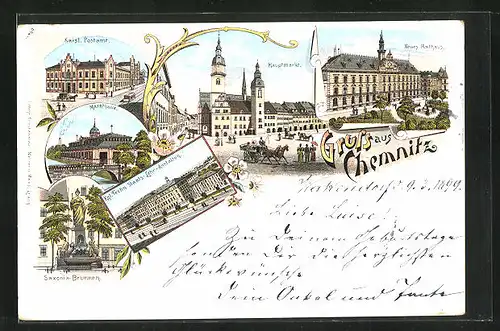 Kaisl. Postamt.
Markthalle
Hauptmarkt.
Neues Rathaus.
Gruss aus
Chemnitz
Kgl. Techn. Staats-Lehr-Anstalten.
Saxonia-Brunnen
9. 3. 1899.
Liebe Luise!
Zu Deinem Geburtstage
senden Dir die herzlichsten
Glückwünsche
Dein Onkel und Tante